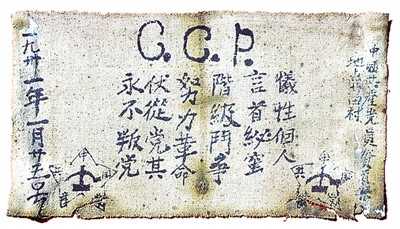 C.C.P.
中國共產党員
地點
犧性個人
言首秘蜜
階級鬥爭
努力革命
伏從党其
永不叛党
一九卅一年一月廿五